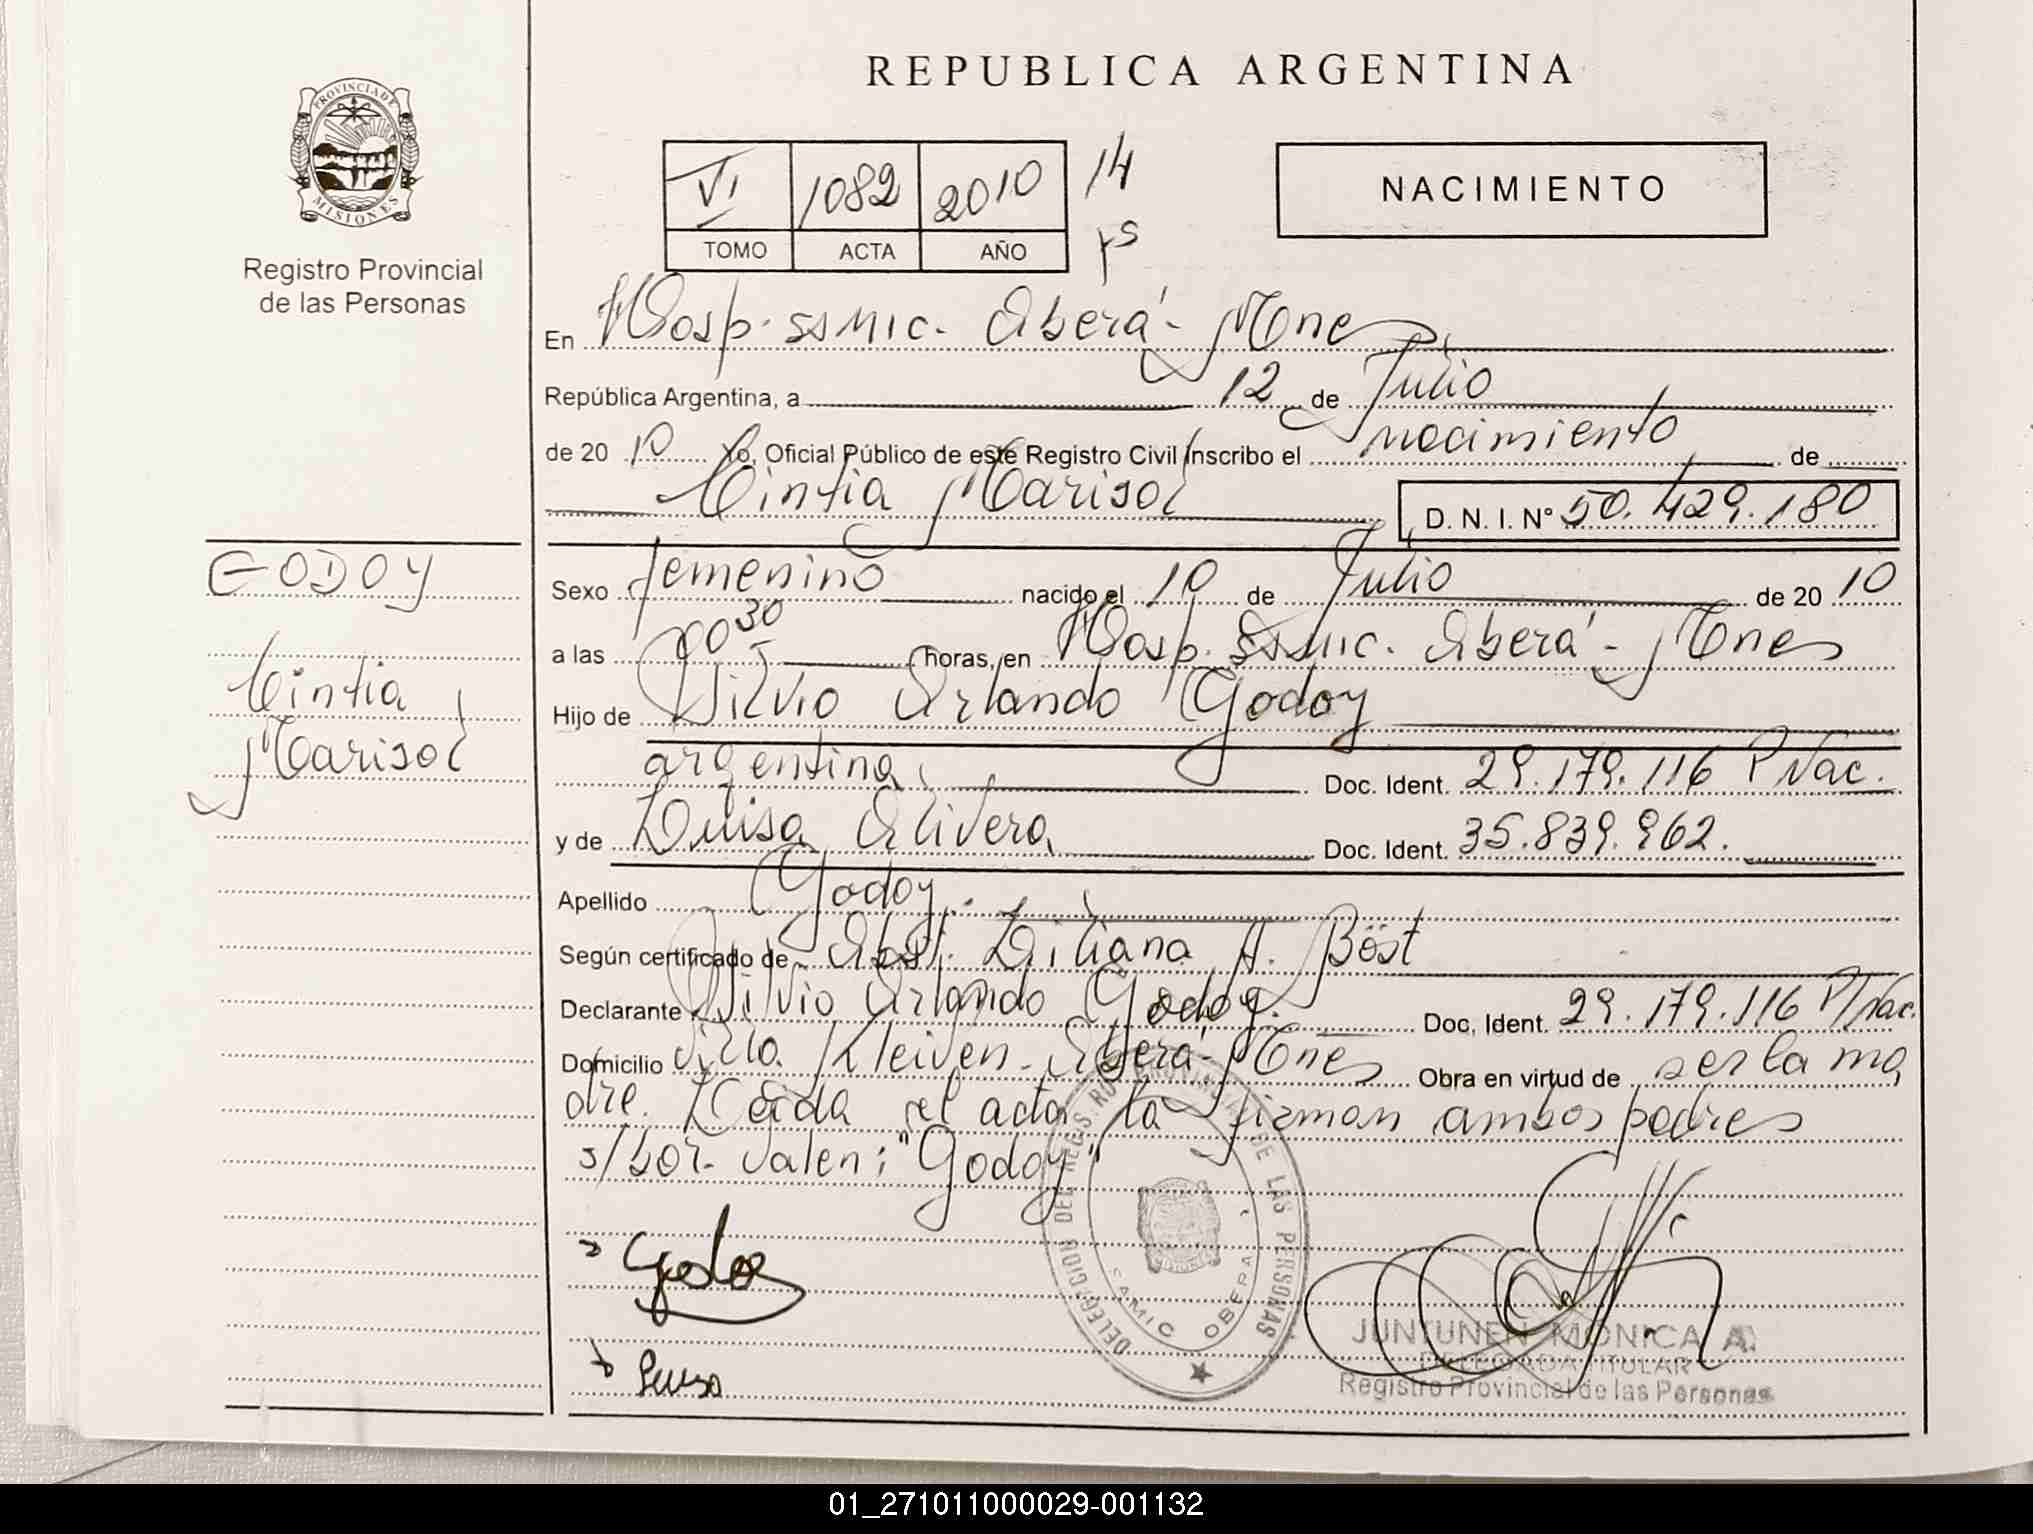 REPUBLICA ARGENTINA
PROVINCIA DE
MISIONES
Registro Provincial
de las Personas
VI 1082 2010 14
TOMO ACTA AÑO
NACIMIENTO
En Hosp. SSMIC. Oberá - Mnes,
República Argentina, a 12 de Julio
de 2010 Yo, Oficial Público de este Registro Civil Inscribo el nacimiento de
Cintia Marisol D. N. I. N° 50.429.180
GODOY
Cintia
Marisol
Sexo femenino nacido el 10 de Julio de 2010
a las 30 horas, en Hosp. SSMIC. Oberá - Mnes
Hijo de Silvio Orlando Godoy
argentina, Doc. Ident. 29.179.116 P/Nac.
y de Luisa Olivera Doc. Ident. 35.839.962.
Apellido Godoy.
Según certificado de Obst. Liliana A. Böst
Declarante Silvio Orlando Godoy. Doc, Ident. 29.179.116 P/Nac.
Domicilio Villa Kleiven - Oberá - Mnes Obra en virtud de ser la ma
dre. Leida el acta la firman ambos padres
s/bor. valen: "Godoy"
Godoy
DELEGACION DEL REGIS. PROVINCIAL DE LAS PERSONAS
SAMIC OBERA
JUNTUNEN MONICA A.
DELEGADA TITULAR
Registro Provincial de las Personas
01_271011000029-001132